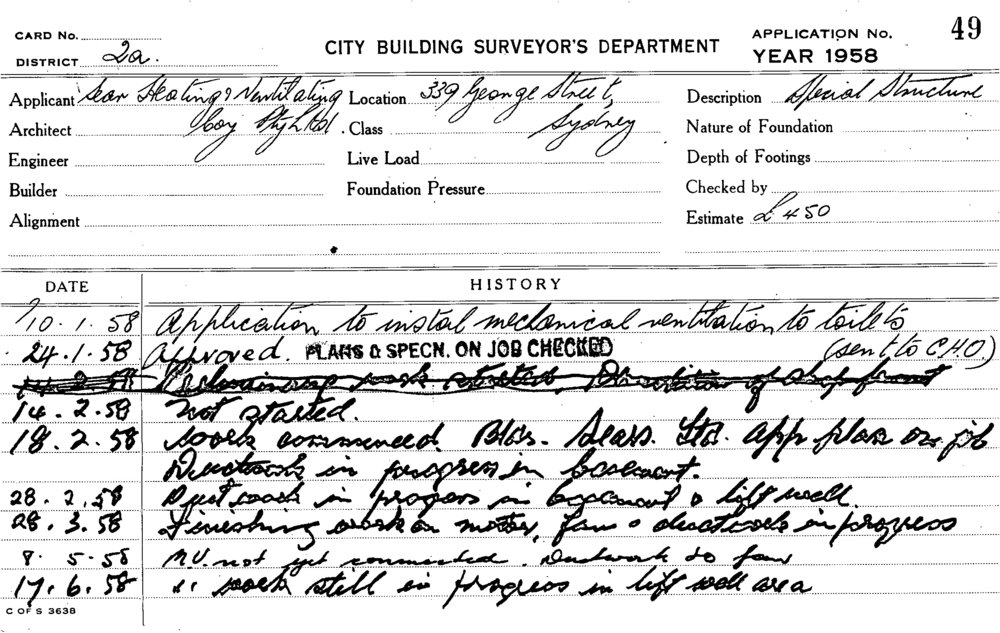 CARD No.
DISTRICT 2a.
CITY BUILDING SURVEYOR'S DEPARTMENT
APPLICATION No. 49
YEAR 1958
Applicant Sear Heating & Ventilating Coy Pty Ltd.
Architect
Engineer
Builder
Alignment
Location 339 George Street, Sydney
Class
Live Load
Foundation Pressure
Description Special Structure
Nature of Foundation
Depth of Footings
Checked by
Estimate £450
DATE HISTORY
10.1.58 Application to instal mechanical ventilation to toilets
24.1.58 Approved. PLANS & SPECN. ON JOB CHECKED (sent to C.H.O.)
14.2.58 Not started.
18.2.58 Work commenced. Bldr. Sears. Ltd. app plan on job
Ductwork in progress in basement.
28.2.58 Duct work in progress in basement & lift well.
28.3.58 Finishing work on motor, fan & ductwork in progress
8.5.58 M.V. not yet connected. Ductwork to fan
17.6.58 " work still in progress in lift well area
C OF S 3638